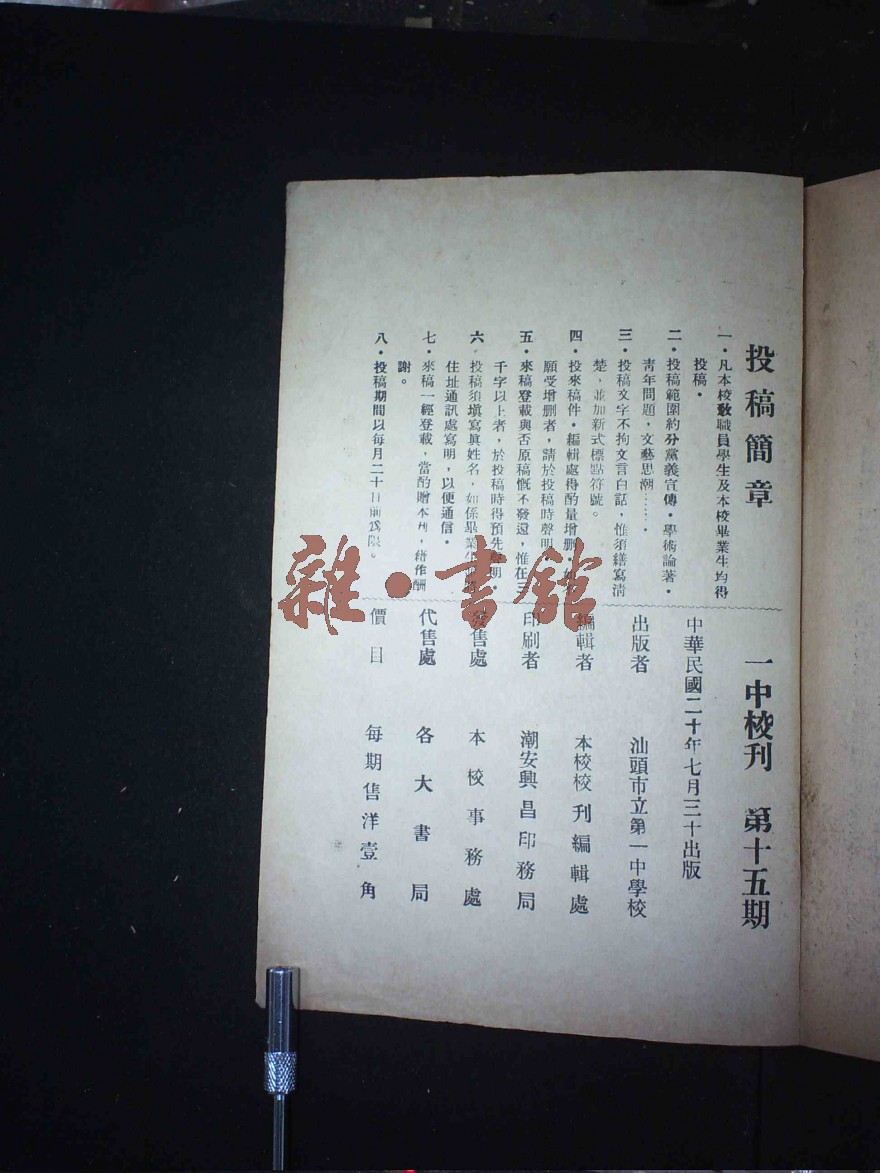 投稿簡章
一・凡本校敎職員學生及本校畢業生均得
投稿・
二・投稿範圍約分黨義宣傳・學術論著・
靑年問題，文藝思潮……・
三・投稿文字不拘文言白話，惟須繕寫淸
楚，並加新式標點符號。
四・投來稿件・編輯處得酌量增删・
願受增删者，請於投稿時聲明
五・來稿登載與否原稿慨不發還，惟在三
千字以上者，於投稿時得預先聲明・
六・投稿須塡寫眞姓名，如係畢業生
住址通訊處寫明，以便通信・
七・來稿一經登載，當酌贈本刋，藉作酬
謝。
八・投稿期間以每月二十日前爲限。
一中校刋 第十五期
中華民國二十年七月三十出版
出版者 汕頭市立第一中學校
編輯者 本校校刊編輯處
印刷者 潮安興昌印務局
發售處 本校事務處
代售處 各大書局
價目 每期售洋壹角
雜・書館